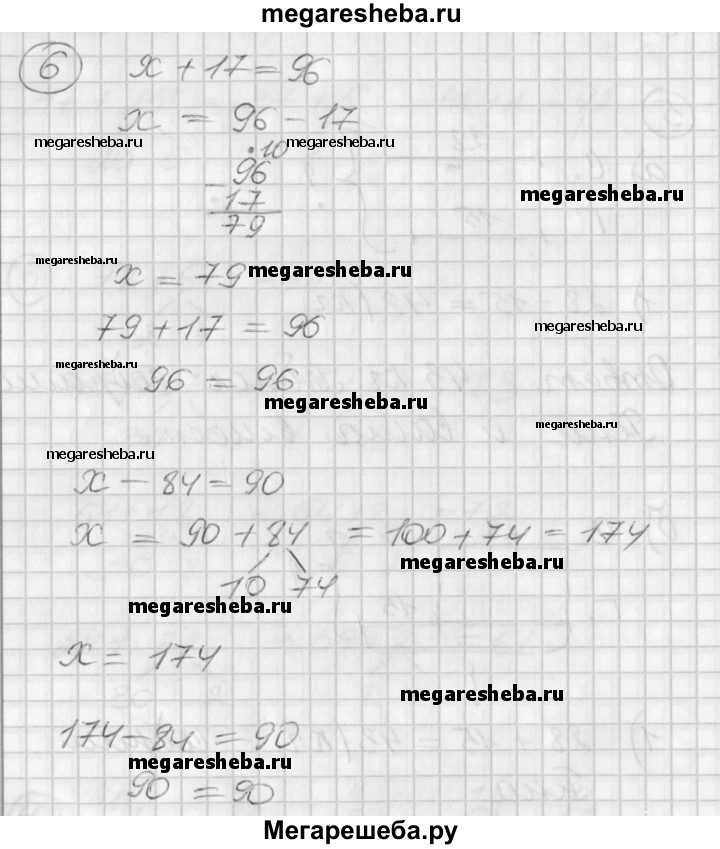 megaresheba.ru
6 x + 17 = 96
x = 96 - 17
megaresheba.ru megaresheba.ru
• 10
- 96
17
79
megaresheba.ru
megaresheba.ru
x = 79 megaresheba.ru
79 + 17 = 96 megaresheba.ru
megaresheba.ru
96 = 96
megaresheba.ru
megaresheba.ru
megaresheba.ru
x - 84 = 90
x = 90 + 84 = 100 + 74 = 174
megaresheba.ru
10 74
megaresheba.ru
x = 174
megaresheba.ru
174 - 84 = 90
megaresheba.ru
90 = 90
Мегарешеба.ру